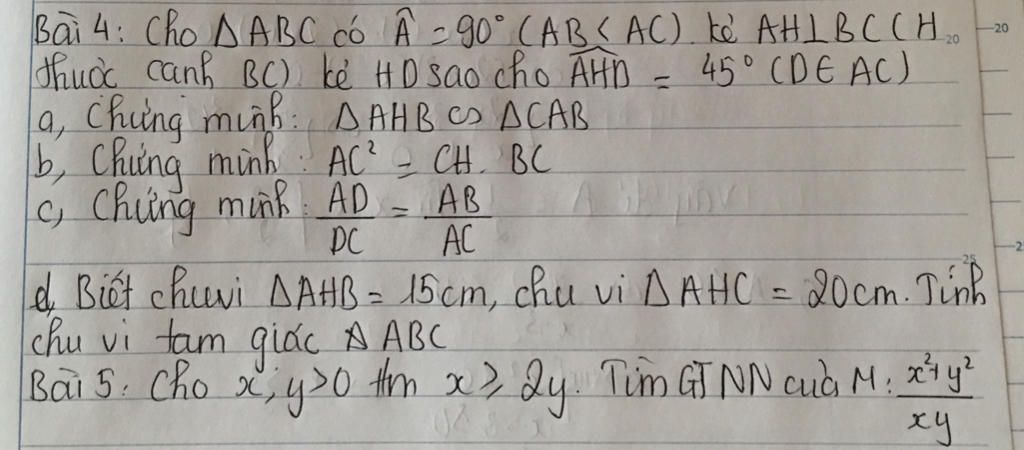 Bài 4: Cho ΔABC có Â = 90° (AB < AC). kẻ AH⊥BC (H
thuộc cạnh BC) kẻ HD sao cho AHD = 45° (D∈AC)
a, Chứng minh: ΔAHB ∽ ΔCAB
b, Chứng minh: AC² = CH. BC
c, Chứng minh: AD/DC = AB/AC
d, Biết chu vi ΔAHB = 15cm, chu vi ΔAHC = 20cm. Tính
chu vi tam giác ΔABC
Bài 5: Cho x, y>0 tm x ≥ 2y. Tìm GTNN của M: x²+y²/xy
20
20
25
2